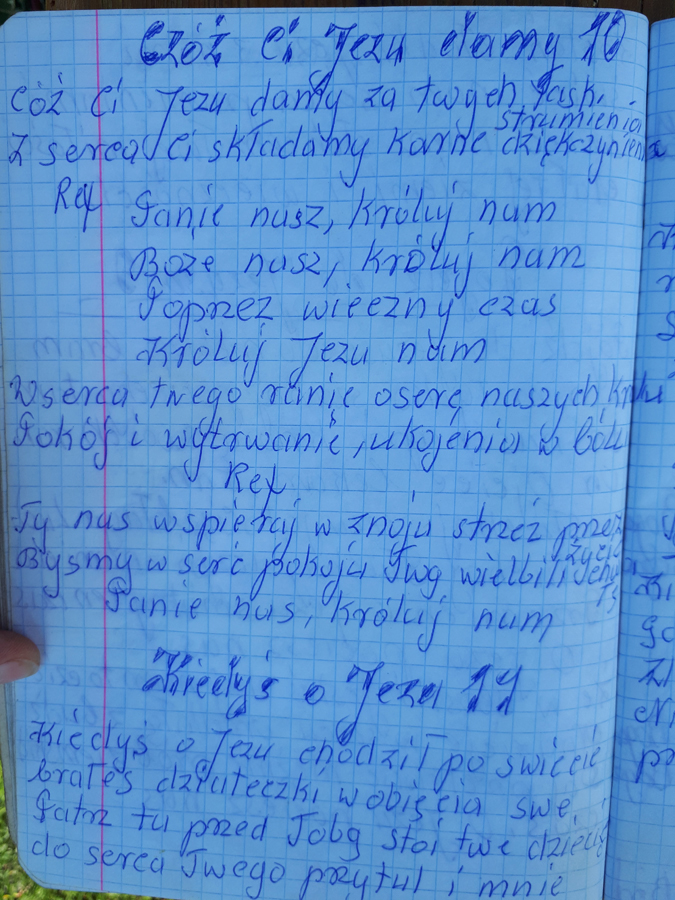 Cóż Ci Jezu damy 10
Cóż Ci Jezu damy za twych łask
strumienia
Z serca Ci składamy korne dziękczynienia
Ref Panie nasz, króluj nam
Boże nasz, króluj nam
Poprzez wieczny czas
Króluj Jezu nam
W serca twego ranie oserę naszych
Pokój i wytrwanie, ukojenia w bólu
Ref
Ty nas wspieraj w znoju strzeż przez
życie
Byśmy w serc pokoju Twą wielbili
Panie nas, króluj nam
Kiedyś o Jezu 11
Kiedyś o Jezu chodził po świecie
brałeś dziateczki w objęcia swe
Patrz tu przed Tobą stoi twe dziecię
do serca Twego przytul i mnie